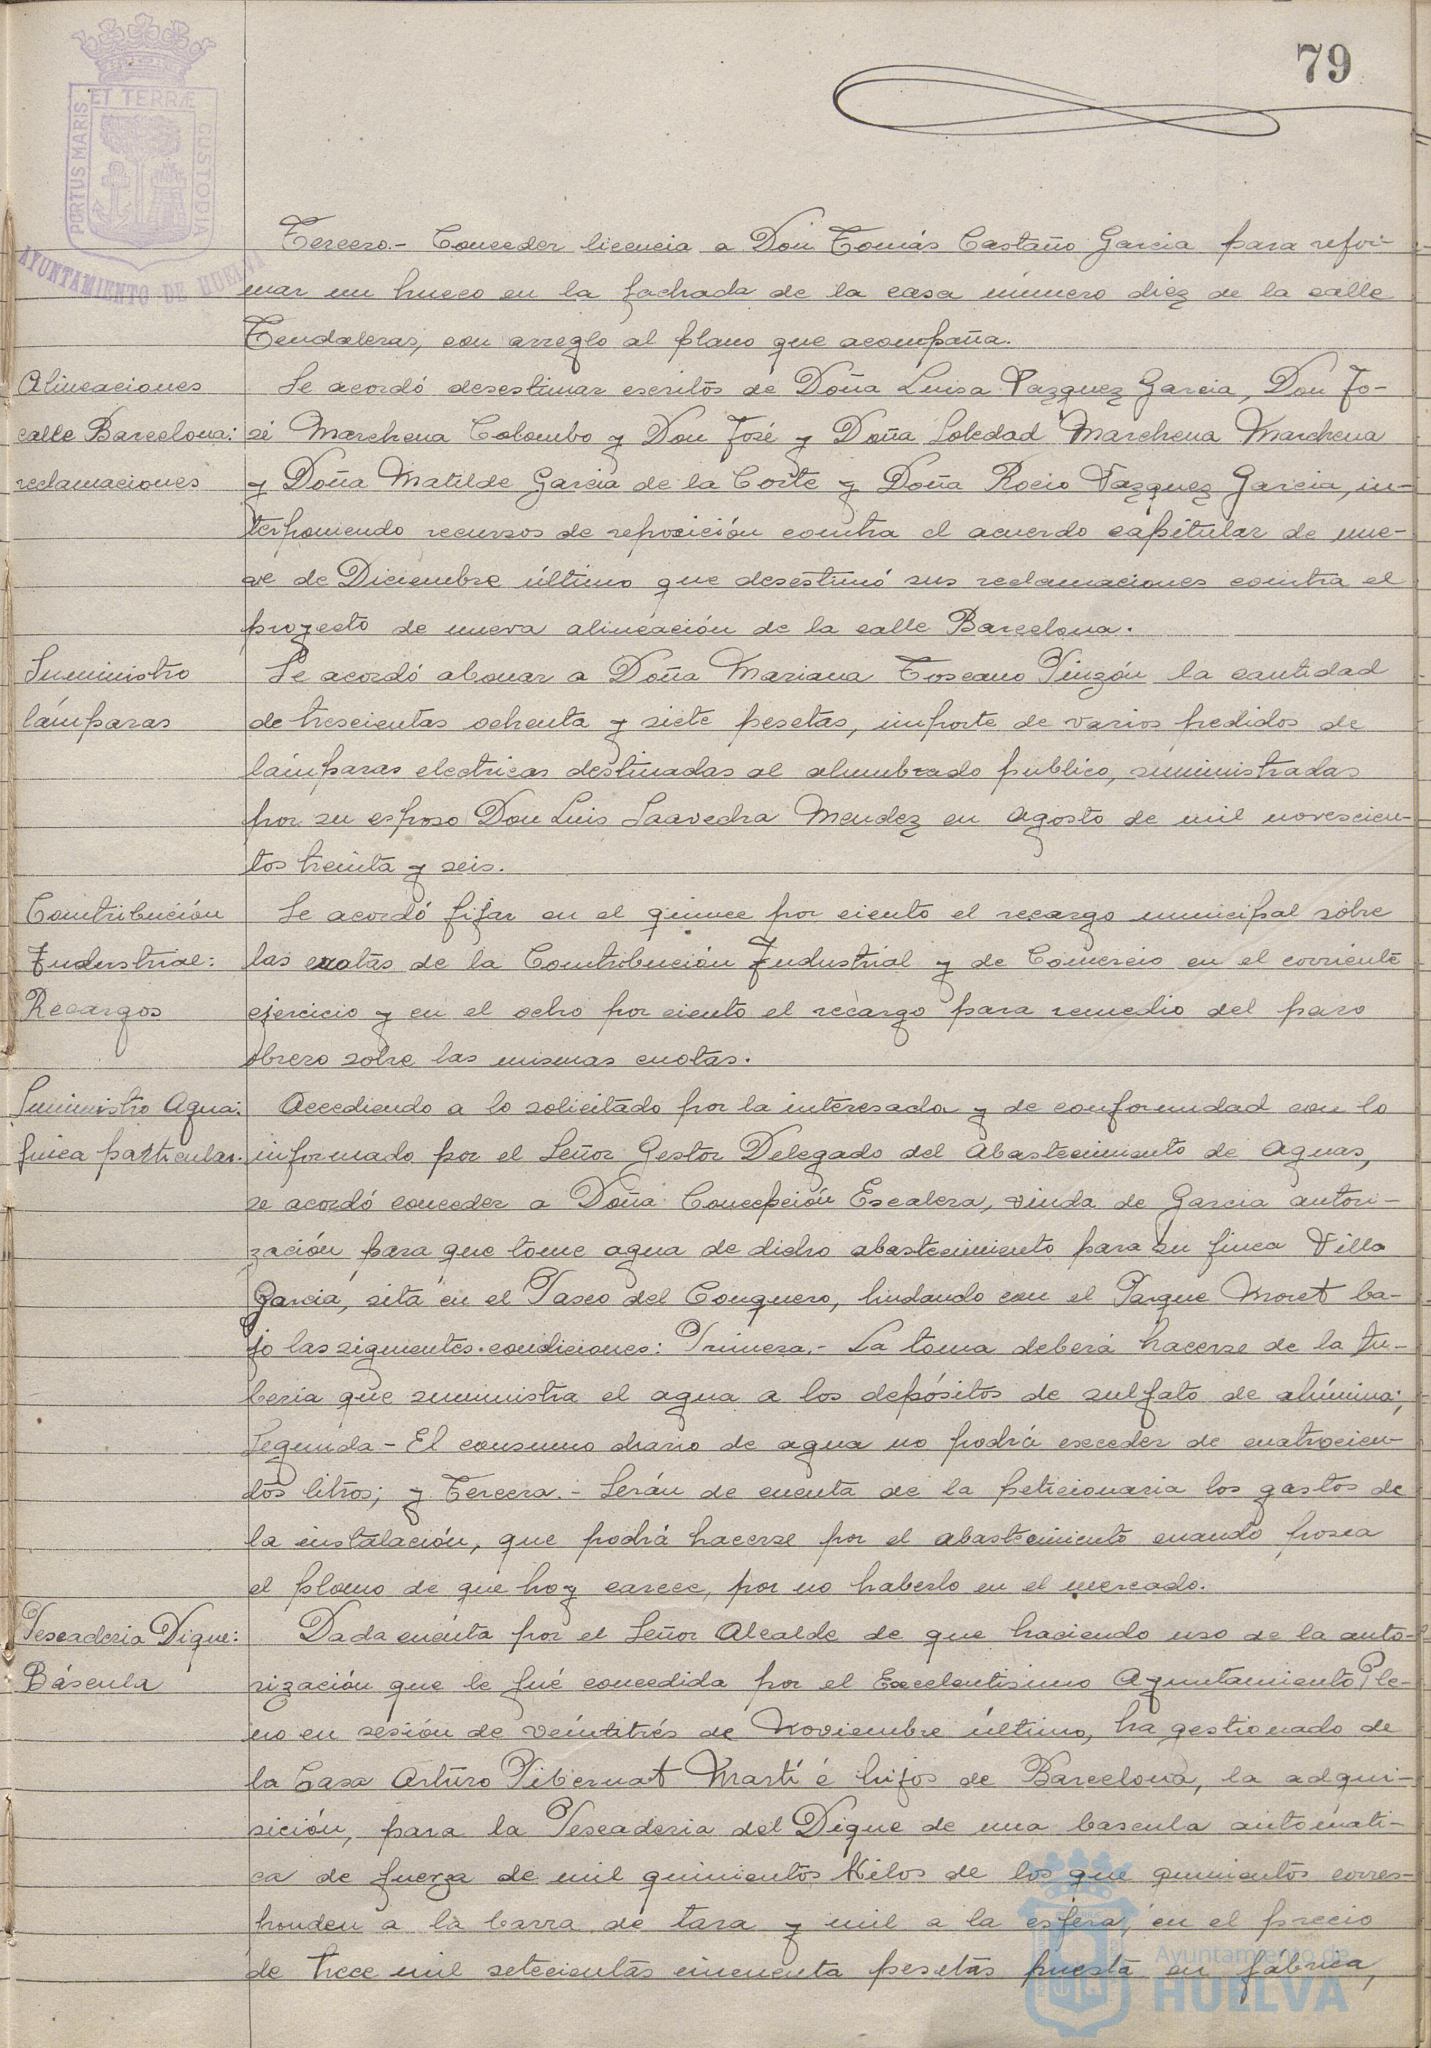 79
PORTUS MARIS ET TERRÆ CUSTODIA
AYUNTAMIENTO DE HUELVA
Tercero.- Conceder licencia a Don Tomás Castaño Garcia para refor-
mar un hueco en la fachada de la casa número diez de la calle
Tendaleras, con arreglo al plano que acompaña.
Alineaciones
calle Barcelona:
reclamaciones
Se acordó desestimar escritos de Doña Luisa Vazquez Garcia, Don Jo-
sé Marchena Colombo y Don José y Doña Soledad Marchena Marchena
y Doña Matilde Garcia de la Corte y Doña Rocio Vazquez Garcia, in-
terponiendo recursos de reposición contra el acuerdo capitular de nue-
ve de Diciembre último que desestimó sus reclamaciones contra el
proyecto de nueva alineación de la calle Barcelona.
Suministro
lámparas
Se acordó abonar a Doña Mariana Toscano Pinzón la cantidad
de trescientas ochenta y siete pesetas, importe de varios pedidos de
lámparas electricas destinadas al alumbrado publico, suministradas
por su esposo Don Luis Saavedra Mendez en Agosto de mil novescien-
tos treinta y seis.
Contribución
Industrial:
Recargos
Se acordó fijar en el quince por ciento el recargo municipal sobre
las cuotas de la Contribución Industrial y de Comercio en el corriente
ejercicio y en el ocho por ciento el recargo para remedio del paro
obrero sobre las mismas cuotas.
Suministro Agua:
finca particular.
Accediendo a lo solicitado por la interesada y de conformidad con lo
informado por el Señor Gestor Delegado del Abastecimiento de Aguas,
se acordó conceder a Doña Concepción Escalera, viuda de Garcia autori-
zación para que tome agua de dicho abastecimiento para su finca Villa
Garcia, sita en el Paseo del Conquero, lindando con el Parque Moret ba-
jo las siguientes condiciones: Primera.- La toma deberá hacerse de la tu-
beria que suministra el agua a los depósitos de sulfato de alúmina;
Segunda - El consumo diario de agua no podrá exceder de cuatrocien-
dos litros; y Tercera.- Serán de cuenta de la peticionaria los gastos de
la instalación, que podrá hacerse por el abastecimiento cuando posea
el plomo de que hoy carece, por no haberlo en el mercado.
Pescaderia Dique:
Báscula
Dada cuenta por el Señor Alcalde de que haciendo uso de la auto-
rización que le fué concedida por el Excelentisimo Ayuntamiento Ple-
no en sesión de veintitrés de Noviembre último, ha gestionado de
la Casa Arturo Pibernat Martí é hijos de Barcelona, la adqui-
sición, para la Pescaderia del Dique de una bascula automáti-
ca de fuerza de mil quinientos Kilos de los que quinientos corres-
ponden a la barra de tara y mil a la esfera, en el precio
de trece mil setecientas cincuenta pesetas puesta en fábrica,
Ayuntamiento de
HUELVA